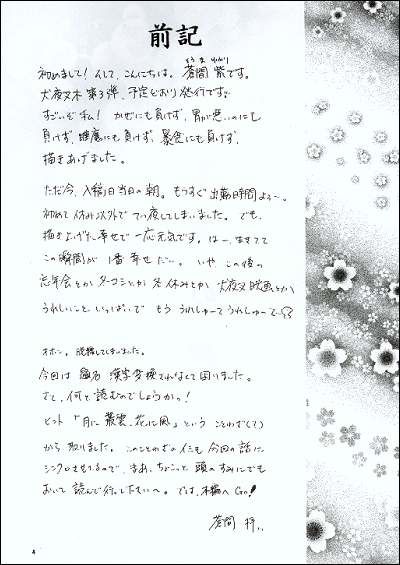 前記
初めまして！そして、こんにちは。蒼間 紫です。
犬夜叉本 第3弾、予定どおり発行です！
すごいぞ私！ かぜにも負けず、胃が悪いのにも
負けず、睡魔にも負けず、暴食にも負けず、
描きあげました。
ただ今、入稿日当日の朝。もうすぐ出勤時間よ〜。
初めて休み以外で 徹夜してしまいました。でも、
描き上げた幸せで 一応元気です。はー、
この瞬間が 1番幸せだ…。いや、この後の
忘年会とか 冬休みとか 犬夜叉映画とか
うれしいこと いっぱいで もう うれしゅーてうれしゅーて
オホン。脱線してしまいました。
今回は 題名 漢字変換されなくて困りました。
さて、何と読むのでしょうかっ！
ヒント 「月に叢雲、花に風」という ことわざ
から 取りました。このことわざのイミも 今回の話に
シンクロさせてるので、まあ、ちょこっと 頭のすみにでも
おいて 読んで 下さいへ。では、本編へ Go!
蒼間 拝
4